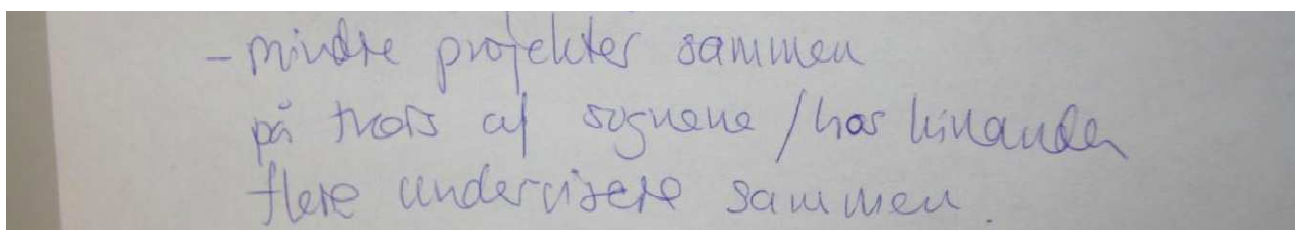 - mindre projekter sammen
på tværs af sognene / hos hinanden
flere undervisere sammen.